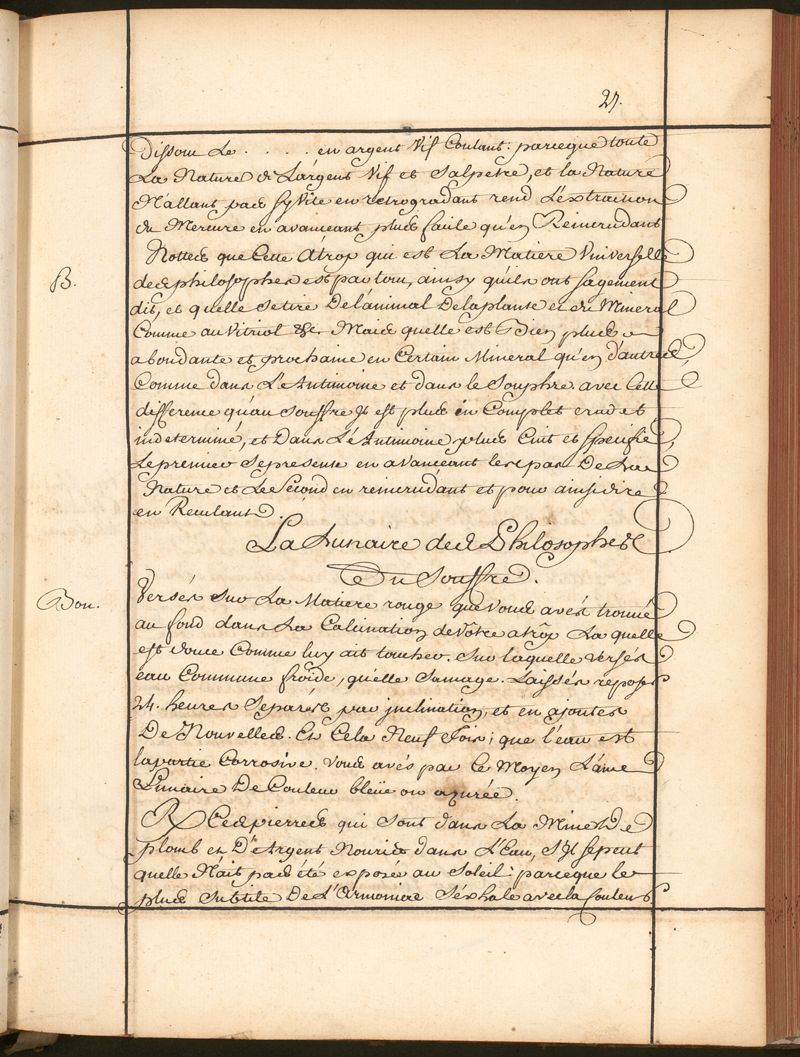 27.
Dissout Le . . . . en argent Vif Coulant : parceque toute
La Nature de L'argent Vif est Salpetre, et la Nature
N'allant pas sy Vite en retrogradant rend L'extraction
du Mercure en avanceant plus facile qu'en Reincrudant
B.
Nottes que Cette Atrop qui est La Matiere Universelle
des philosophes est partout, ainsy qu'ils ont sagement
dit, et quelle se tire De l'animal De la plante et du Mineral
Comme au Vitriol &c. Mais quelle est bien plus
abondante et prochaine en Certain Mineral qu'en d'autres,
Comme dans L'Antimoine et dans le Souphre avec Cette
difference qu'au souffre Il est plus in Complet crud et
indeterminé, et Dans L'Antimoine plus Cuit et specifié,
Le premier se presente en avanceant les pas De La
Nature et Le Second en reincrudant et pour ainsi dire
en Reculant.
La Lunaire des Philosophes
Du Souffre.
Bon.
Versés sur La Matiere rouge que vous avés trouvé
au fond dans La Calcination de Vôtre atrôp La quelle
est douce Comme luy ait toucher. Sur laquelle versés
eau Commune froide, qu'elle Surnage. Laissés reposer
24. heures Separés par inclination, et en ajoutés
De Nouvelles. Et Cela Neuf fois ; que l'eau est
la partie Corrosive. Vous avés par Ce Moyen L'ame
Lunaire De Couleur bleüe ou azurée.
℞ Ces pierres qui sont dans La Mine De
plomb et D'Argent Nouris dans L'Eau, S'Il se peut
quelle N'ait pas été exposée au Soleil : parceque le
plus Subtile De L'Armoniac S'exhale avec la Couleur